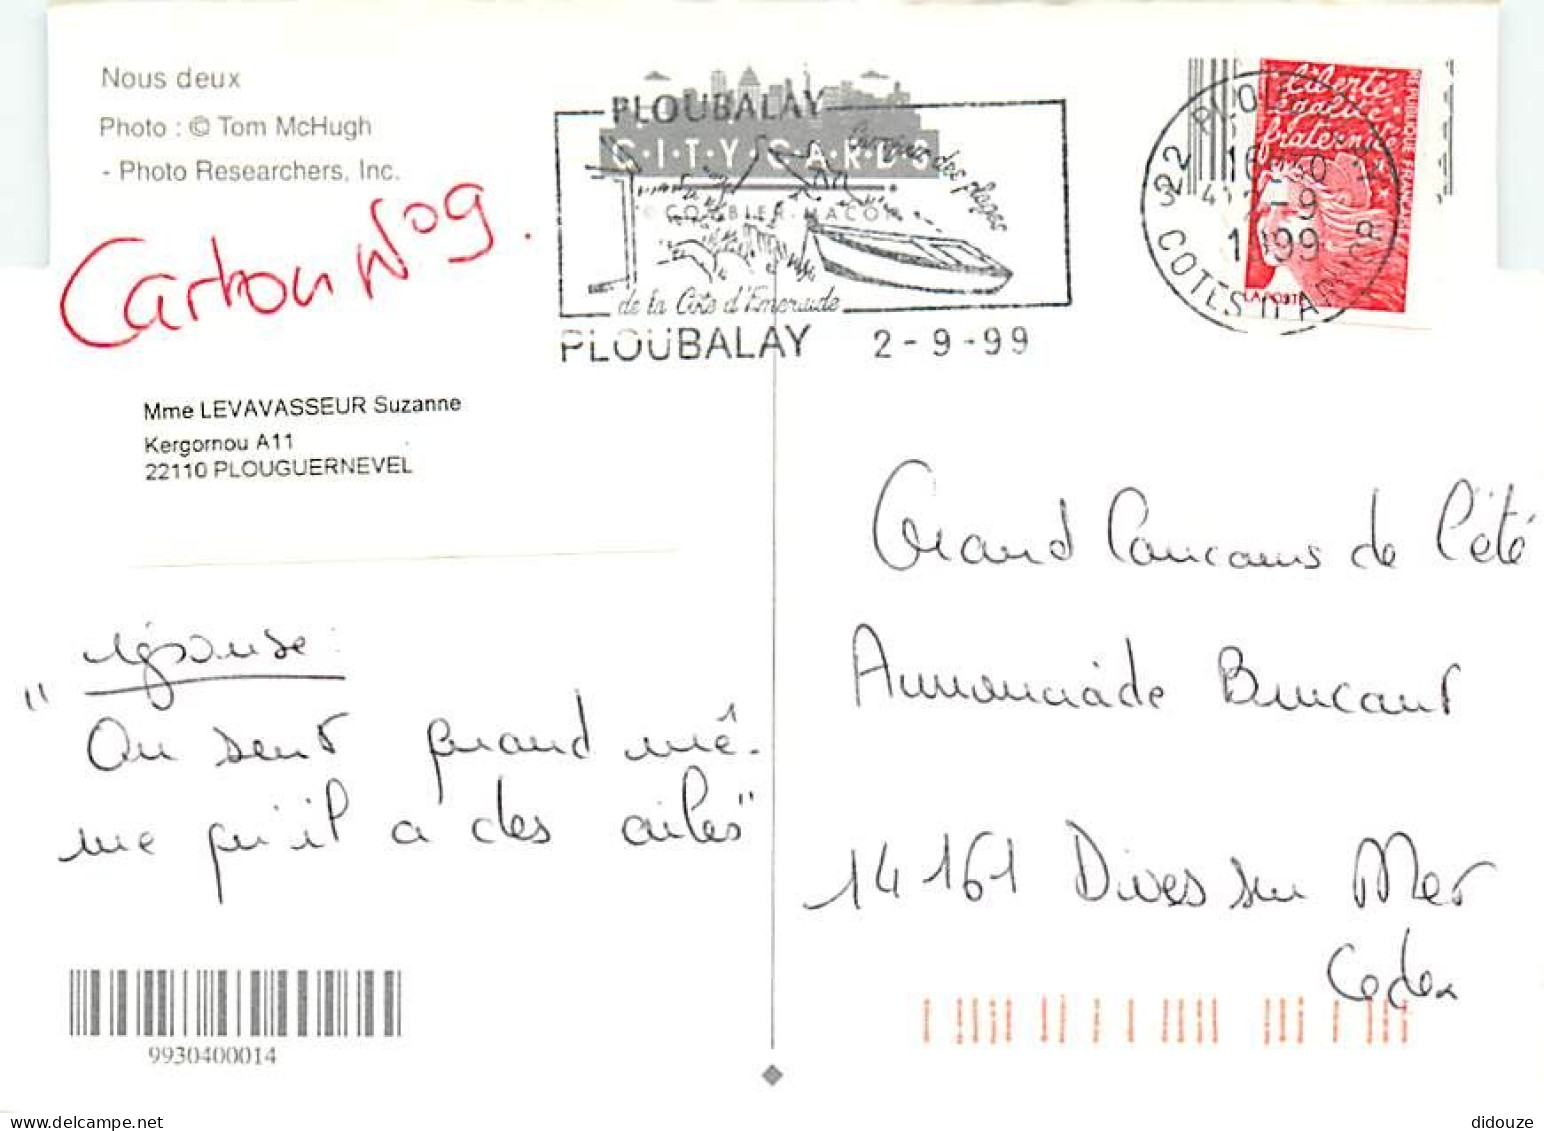 Nous deux
Photo : © Tom McHugh
- Photo Researchers, Inc.
Carton N° 9.
PLOUBALAY
C·I·T·Y·CARDS
COMBIER MACON
Carrefour des plages
de la Côte d'Emeraude
PLOUBALAY 2-9-99
22
COTES D'ARMOR
16H30
2-9
1999
Liberté
égalité
fraternité
REPUBLIQUE FRANCAISE
LA POSTE
Mme LEVAVASSEUR Suzanne
Kergornou A11
22110 PLOUGUERNEVEL
réponse :
"On sent quand mê-
me qu'il a des ailes"
Grand Concours de l'été
Annonciade Brucant
14161 Dives sur Mer
Cedex
9930400014
didouze